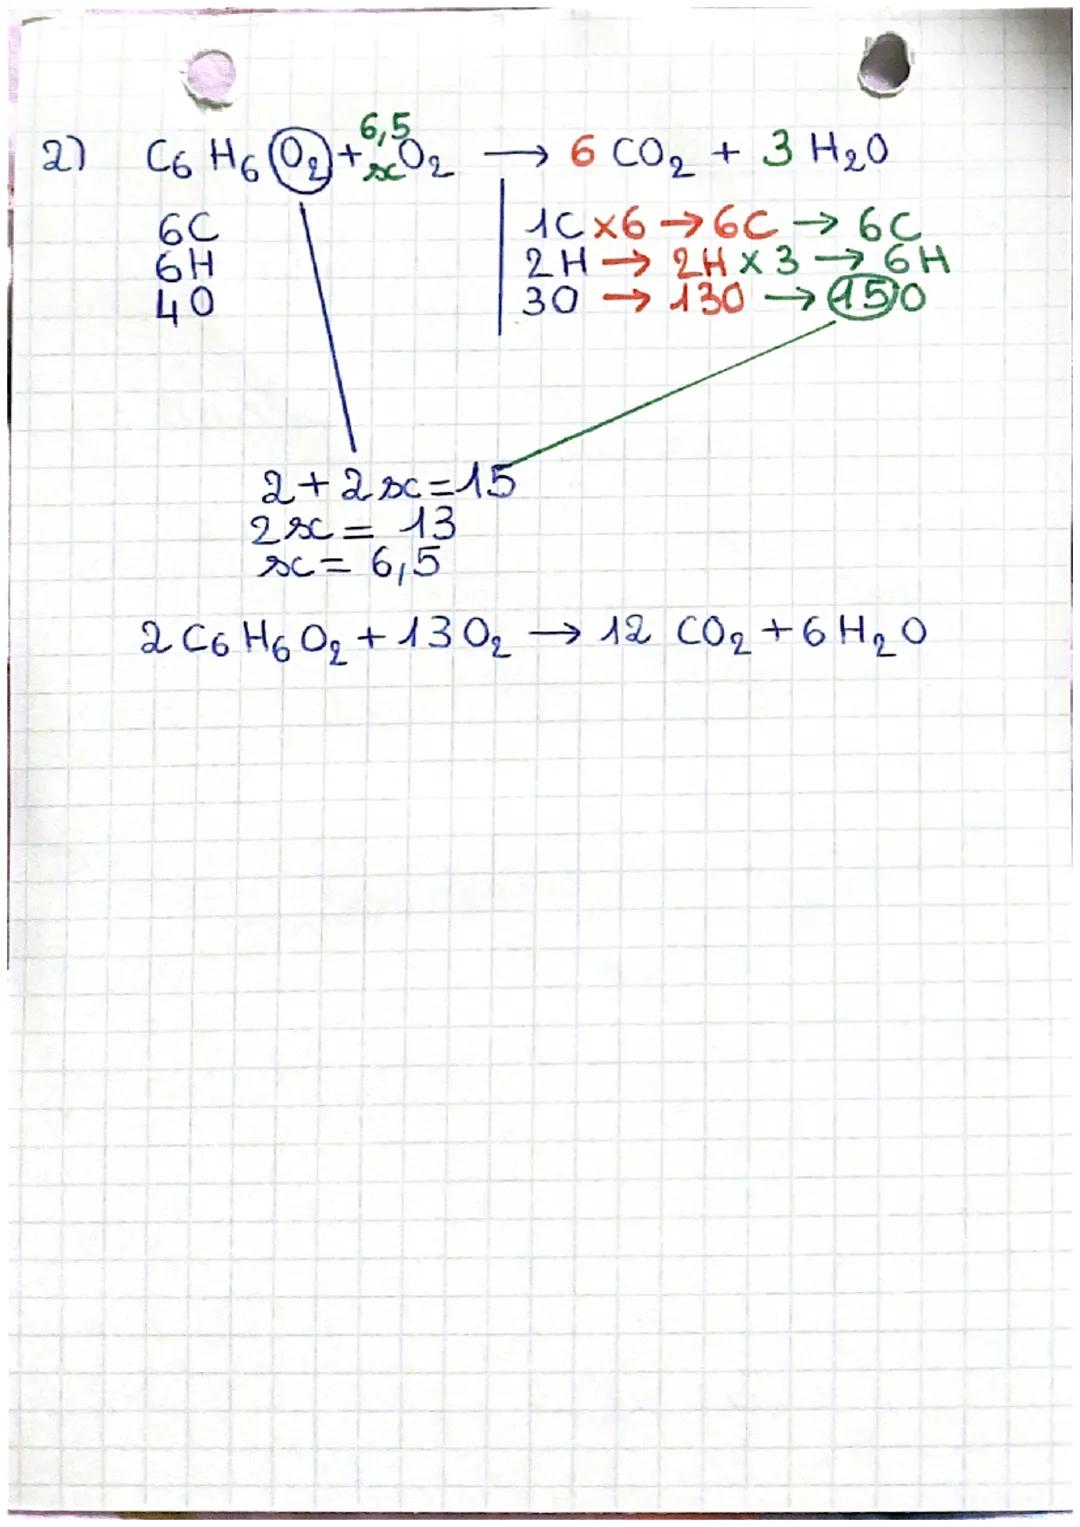 2) C₆H₆O₂ + 6,5 x O₂ → 6 CO₂ + 3 H₂O
6C 1C x6 → 6C → 6C
6H 2H → 2H x 3 → 6H
4O 3O → 13O → 15O
2 + 2x = 15
2x = 13
x = 6,5
2 C₆H₆O₂ + 13 O₂ → 12 CO₂ + 6 H₂O